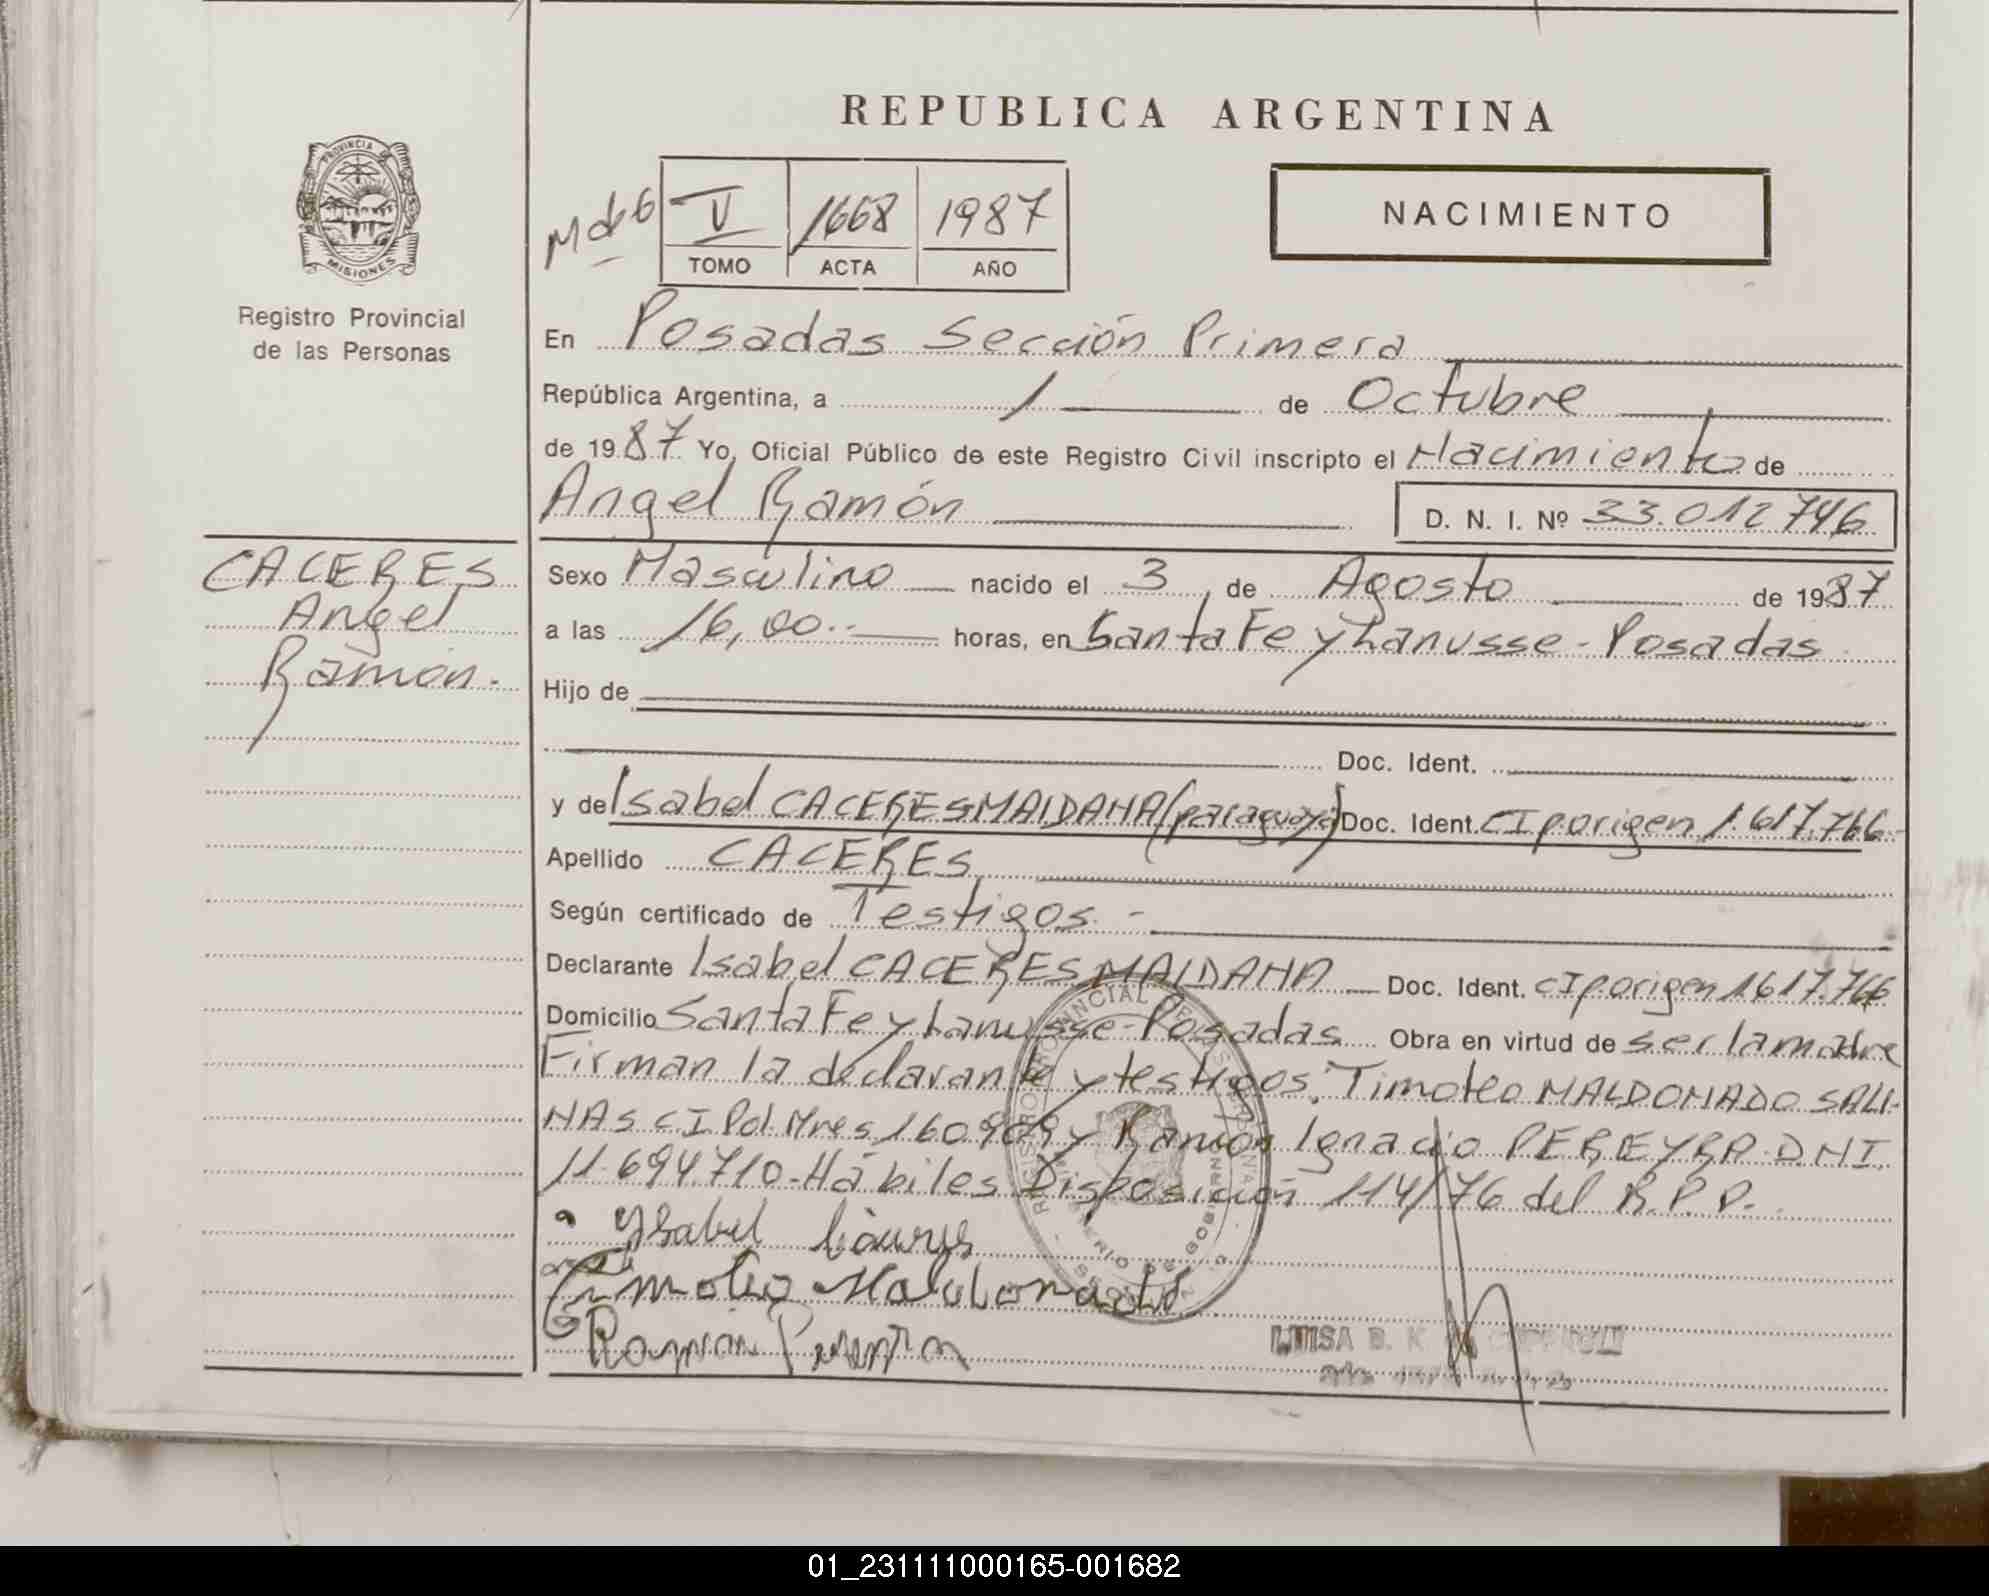 REPUBLICA ARGENTINA
PROVINCIA DE
MISIONES
Registro Provincial
de las Personas
V 1668 1987
TOMO ACTA AÑO
NACIMIENTO
En Posadas Sección Primera
República Argentina, a 1 de Octubre
de 1987 Yo, Oficial Público de este Registro Civil inscripto el Nacimiento de
Angel Ramón D. N. I. Nº 33.012746
CACERES
Angel
Ramón.
Sexo Masculino nacido el 3 de Agosto de 1987
a las 16,00.- horas, en Santa Fe y Lanusse - Posadas
Hijo de
Doc. Ident.
y de Isabel CACERES MAIDANA (paraguaya) Doc. Ident. CI p.origen 1.617.766
Apellido CACERES
Según certificado de Testigos.-
Declarante Isabel CACERES MAIDANA Doc. Ident. CI p.origen 1.617.766
Domicilio Santa Fe y Lanusse - Posadas Obra en virtud de ser la madre
Firman la declarante y testigos: Timoteo MALDONADO SALI-
NAS CI Pol. Mnes 160909 y Ramón Ignacio PEREYRA D.N.I.
11.694.710 - Hábiles Disposición 114/76 del R.P.P.
Ysabel
Timoteo Maldonado
Ramon
LUISA B. K
01_231111000165-001682